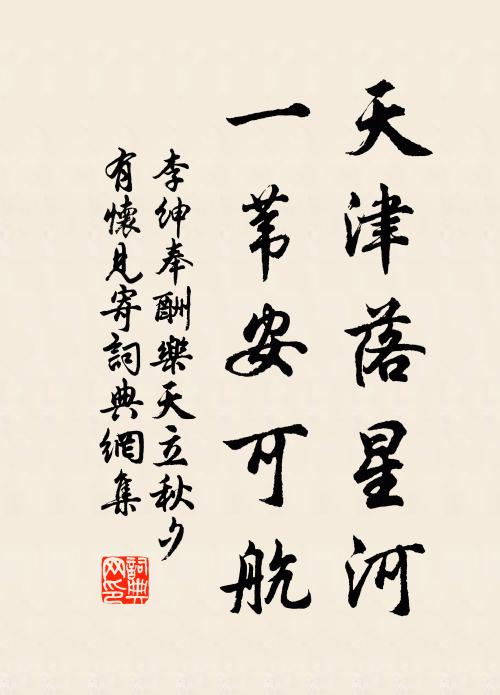 天津落星河
一苇安可航
李紳奉酬樂天立秋夕
有懷見寄詞典網集
詞典
网印